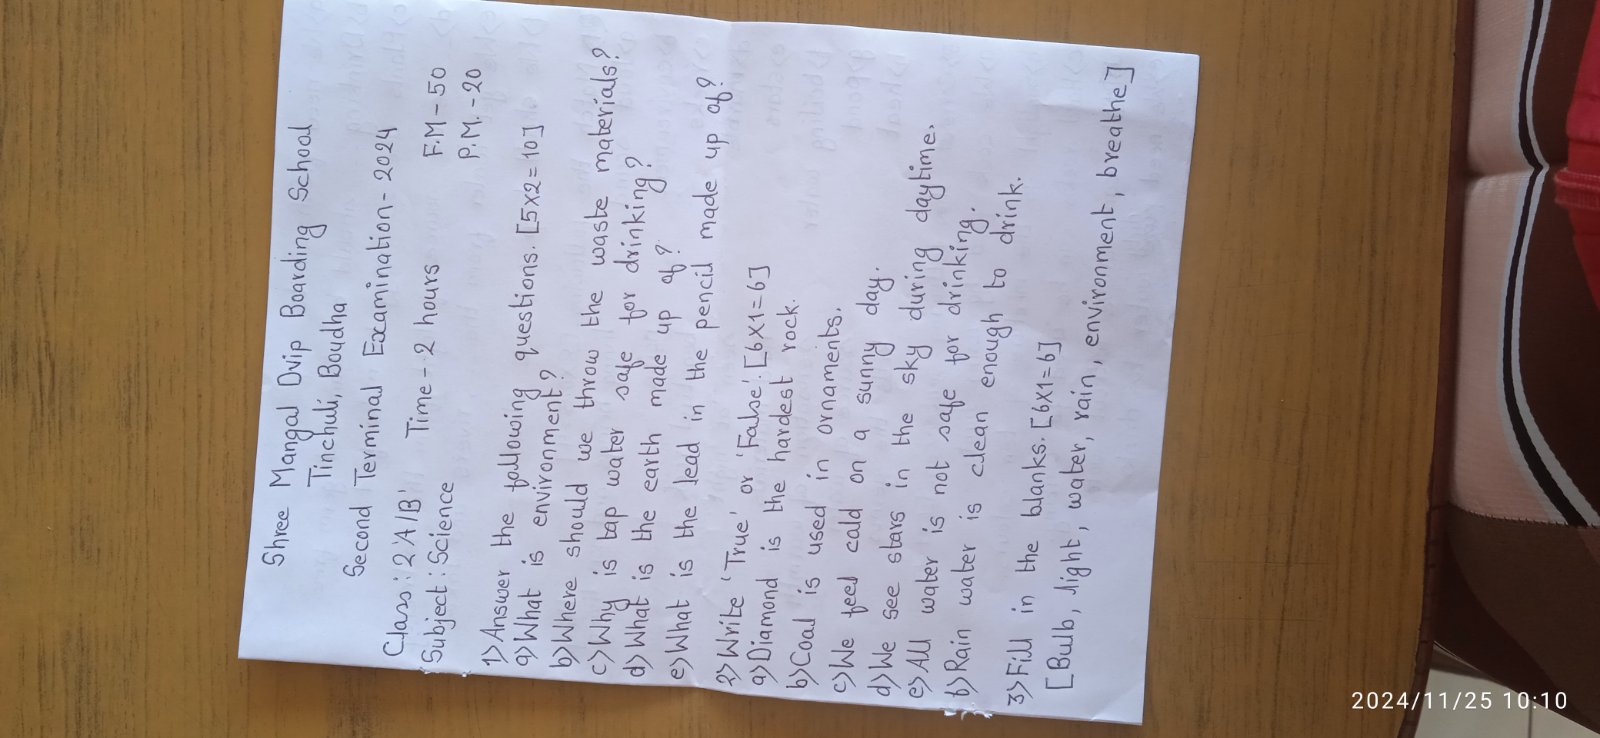 Shree Mangal Dvip Boarding School
Tinchuli, Boudha
Second Terminal Examination - 2024
Class : 2 'A/B' Time - 2 hours F.M - 50
Subject : Science P.M. - 20
1) Answer the following questions. [5x2=10]
a) What is environment?
b) Where should we throw the waste materials?
c) Why is tap water safe for drinking?
d) What is the earth made up of?
e) What is the lead in the pencil made up of?
2) Write 'True' or 'False'. [6x1=6]
a) Diamond is the hardest rock.
b) Coal is used in ornaments.
c) We feel cold on a sunny day.
d) We see stars in the sky during daytime.
e) All water is not safe for drinking.
f) Rain water is clean enough to drink.
3) Fill in the blanks. [6x1=6]
[Bulb, light, water, rain, environment, breathe]
2024/11/25 10:10